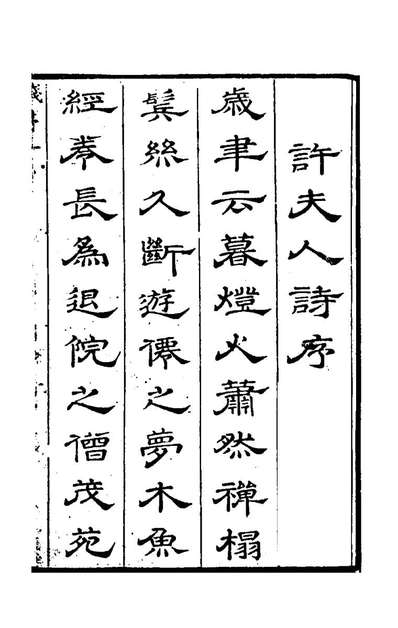 許夫人詩序
歲聿云暮燈火蕭然禪榻
鬓絲久斷遊僊之夢木魚
經卷長爲退院之僧茂苑